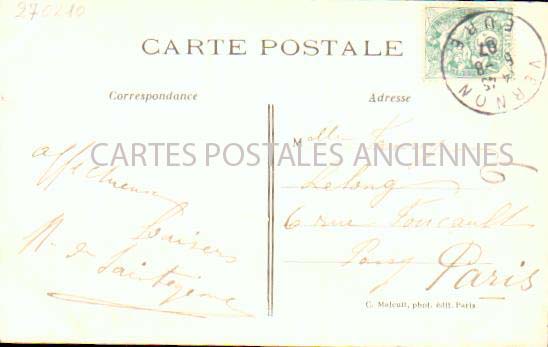 270210
CARTE POSTALE
Correspondance
Adresse
VERNON
EURE
07
CARTES POSTALES ANCIENNES
affectueux
baisers
M. de
Melle
Lelong
6 rue Foucault
Passy Paris
C. Malcuit, phot. édit. Paris